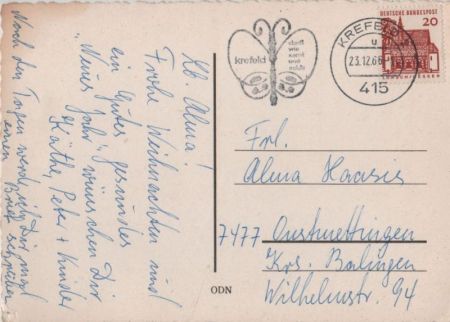 Lb. Alma!
Frohe Weihnachten und
ein gutes gesundes
"Neues Jahr" wünschen Dir
Käthe, Peter + Kinder
Nach den Tagen werde ich Dir mal
einen Brief schreiben
krefeld
stadt
wie
samt
und
seide
KREFELD
u
23.12.66
415
DEUTSCHE BUNDESPOST
20
Frl.
Alma Haasis
7477 Onstmettingen
Krs. Balingen
Wilhelmstr. 94
ODN